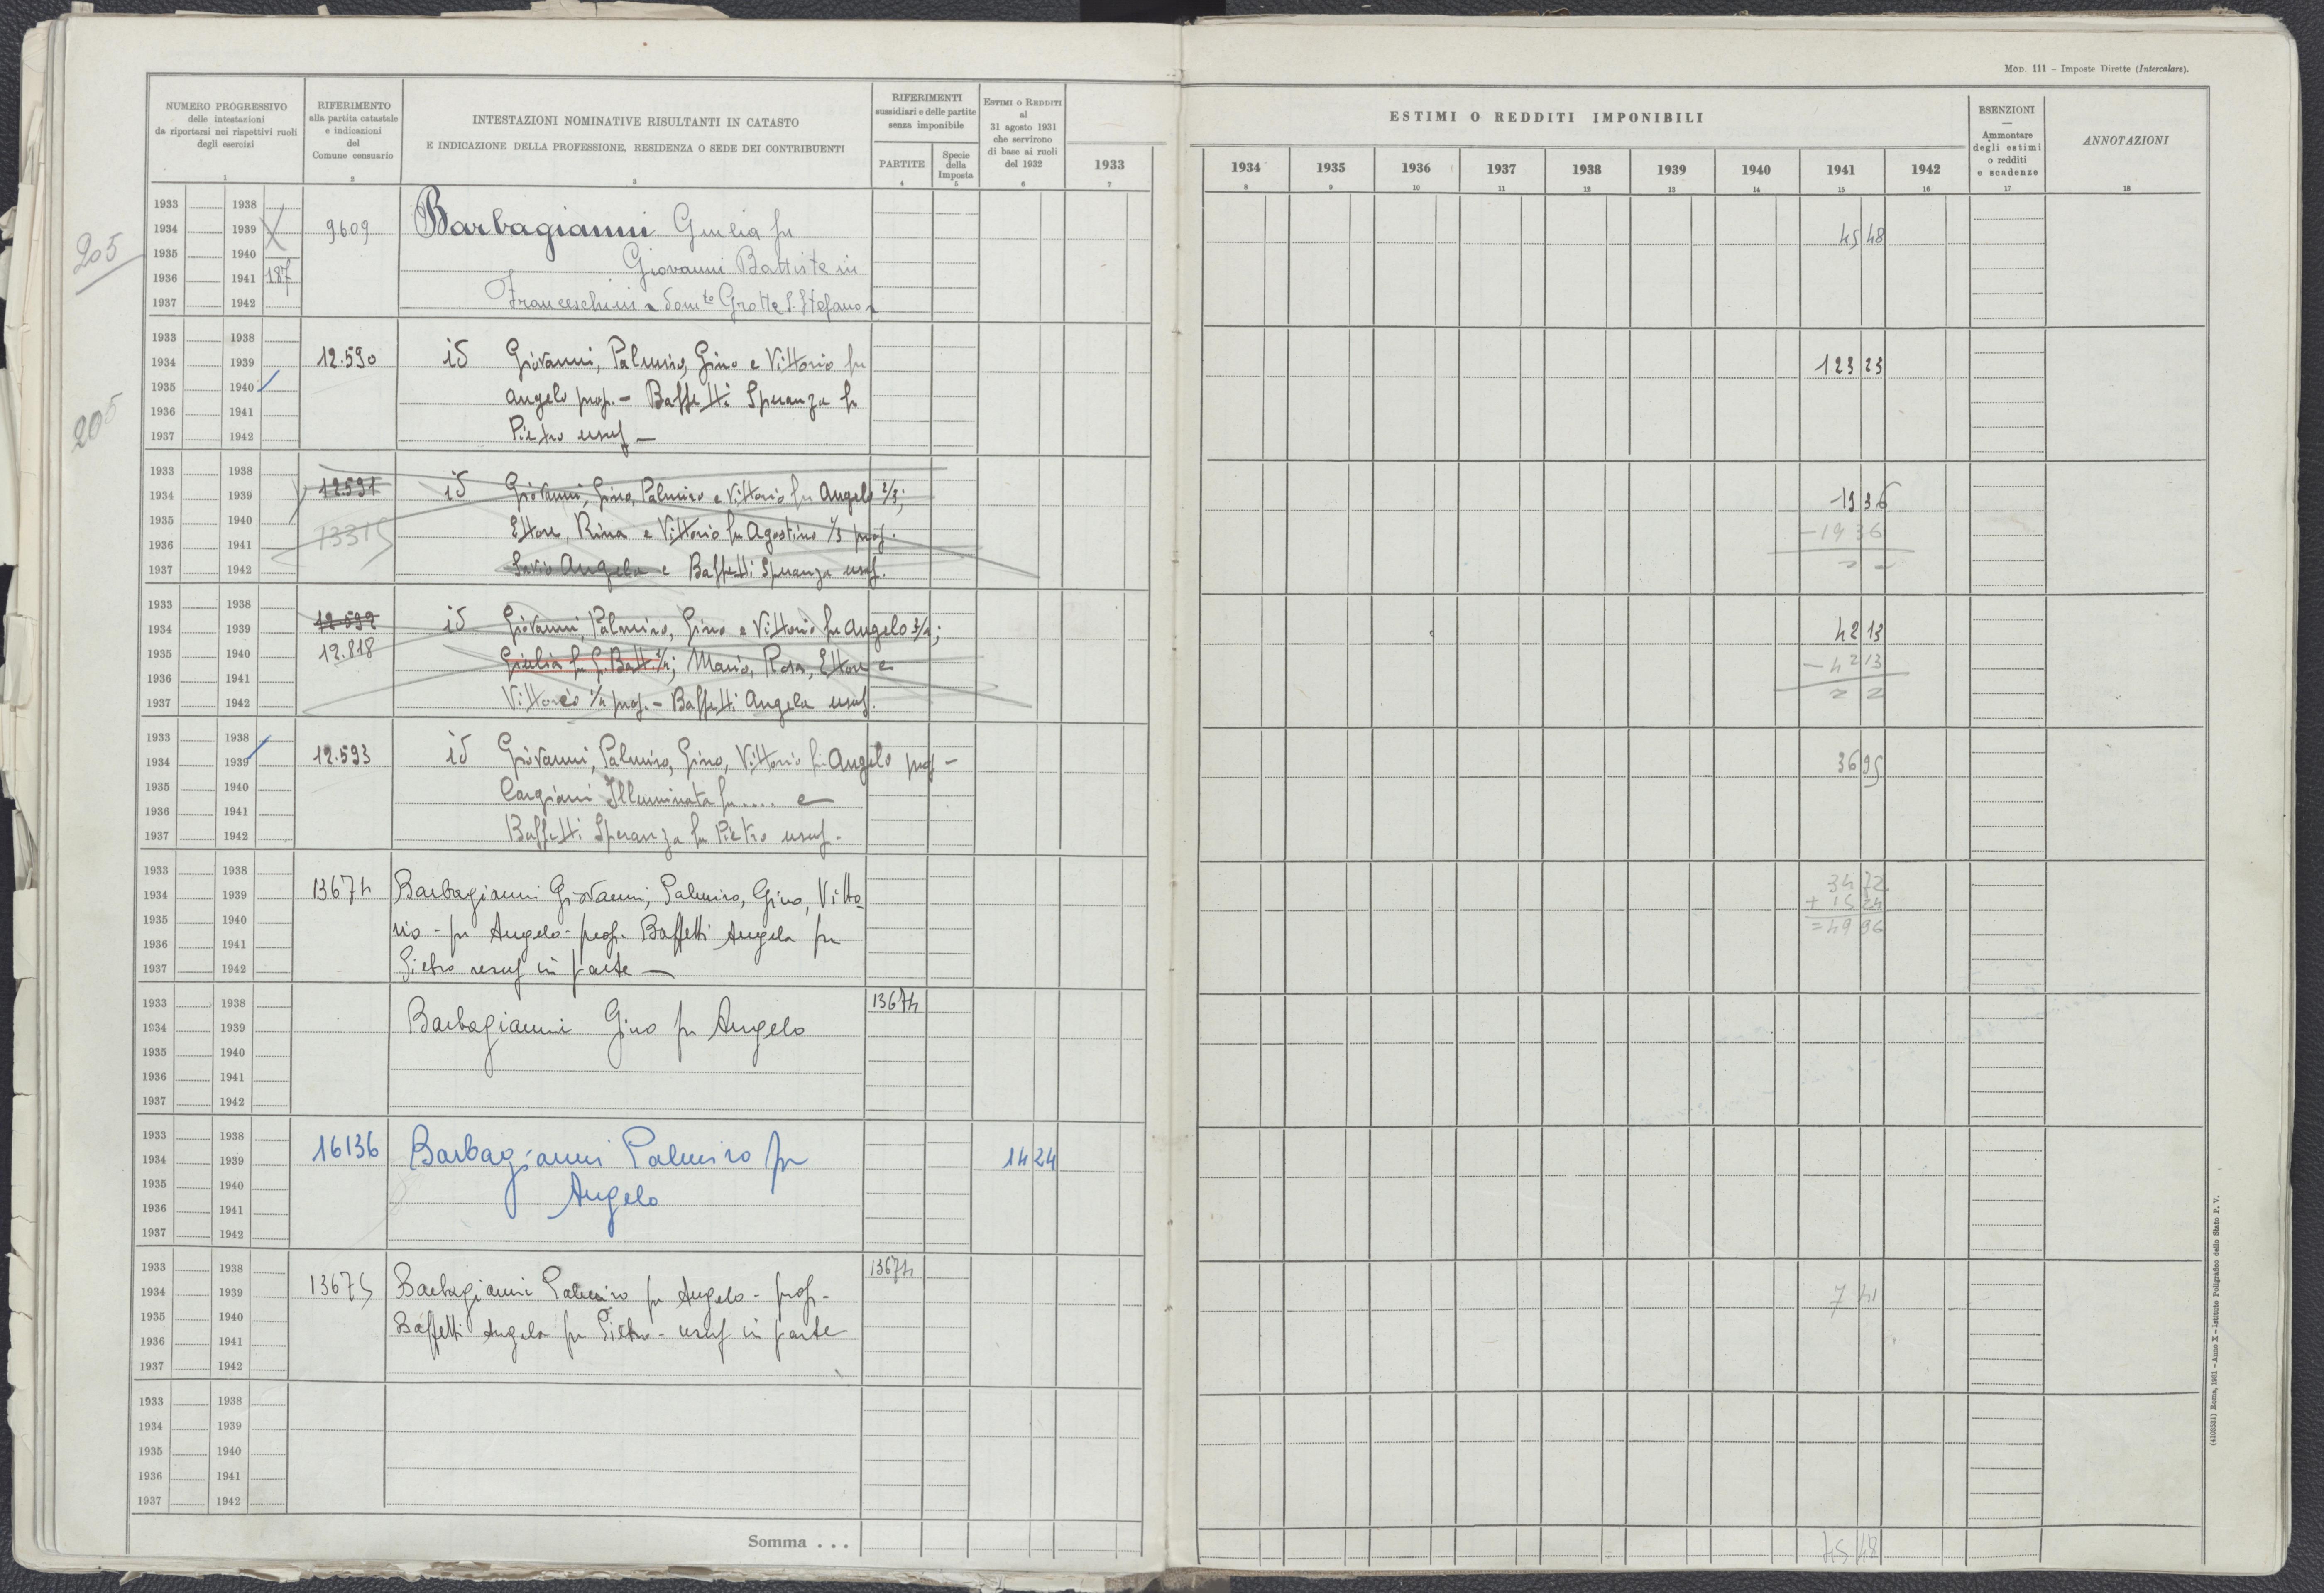 Mod. 111 – Imposte Dirette (Intercalare).
NUMERO PROGRESSIVO
delle intestazioni
da riportarsi nei rispettivi ruoli
degli esercizi
1
RIFERIMENTO
alla partita catastale
e indicazioni
del
Comune censuario
2
INTESTAZIONI NOMINATIVE RISULTANTI IN CATASTO
E INDICAZIONE DELLA PROFESSIONE, RESIDENZA O SEDE DEI CONTRIBUENTI
3
RIFERIMENTI
sussidiari e delle partite
senza imponibile
PARTITE
4
Specie
della
Imposta
5
Estimi o Redditi
al
31 agosto 1931
che servirono
di base ai ruoli
del 1932
6
1933
7
ESTIMI O REDDITI IMPONIBILI
1934 1935 1936 1937 1938 1939 1940 1941 1942
8 9 10 11 12 13 14 15 16
ESENZIONI
—
Ammontare
degli estimi
o redditi
e scadenze
17
ANNOTAZIONI
18
205
1933 1938
1934 1939 X
1935 1940
1936 1941 187
1937 1942
9609
Barbagianni Giulia fu
Giovanni Battista in
Franceschini - domta Grotte S. Stefano
45 48
205
1933 1938
1934 1939
1935 1940
1936 1941
1937 1942
12.590
id Giovanni, Palmiro, Gino e Vittorio fu
Angelo prop. - Baffetti Speranza fu
Pietro usuf —
123 23
1933 1938
1934 1939
1935 1940
1936 1941
1937 1942
12591
13315
id Giovanni, Gino, Palmiro e Vittorio fu Angelo 2/3;
Ettore, Rina e Vittorio fu Agostino 1/3 prop.
Angela e Baffetti Speranza usuf.
19 36
- 19 36
1933 1938
1934 1939
1935 1940
1936 1941
1937 1942
12592
12.818
id Giovanni, Palmiro, Gino e Vittorio fu Angelo 3/4;
Giulia fu G. Batt. 1/4; Mario, Rosa, Ettore e
Vittorio 1/4 prop. - Baffetti Angela usuf.
42 13
- 42 13
1933 1938
1934 1939
1935 1940
1936 1941
1937 1942
12.593
id Giovanni, Palmiro, Gino, Vittorio fu Angelo prop -
Cargiani Illuminata fu .... e
Baffetti Speranza fu Pietro usuf.
36 95
1933 1938
1934 1939
1935 1940
1936 1941
1937 1942
13674
Barbagianni Giovanni, Palmiro, Gino, Vitto
rio - fu Angelo - prop. Baffetti Angela fu
Pietro usuf in parte —
34 72
+ 15 24
= 49 96
1933 1938
1934 1939
1935 1940
1936 1941
1937 1942
Barbagianni Gino fu Angelo
13674
1933 1938
1934 1939
1935 1940
1936 1941
1937 1942
16136
Barbagianni Palmiro fu
Angelo
14 24
1933 1938
1934 1939
1935 1940
1936 1941
1937 1942
13675
Barbagianni Palmiro fu Angelo - prop -
Baffetti Angela fu Pietro - usuf in parte
13674
7 41
1933 1938
1934 1939
1935 1940
1936 1941
1937 1942
Somma . . .
45 48
(4103531) Roma, 1931 – Anno X – Istituto Poligrafico dello Stato P. V.